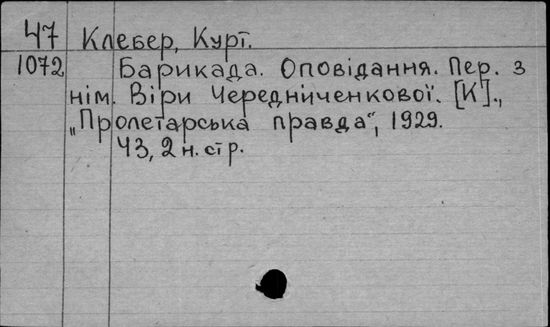 47 Клебер, Курт.
1072 Барикада. Оповідання. Пер. з
нім. Віри Чередниченкової. [К].,
„Пролетарська правда“, 1929.
43, 2 н. стр.